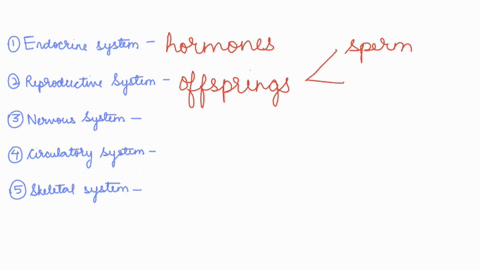 ① Endocrine system - hormones sperm
② Reproductive System - offsprings
③ Nervous System -
④ Circulatory system -
⑤ Skeletal system -